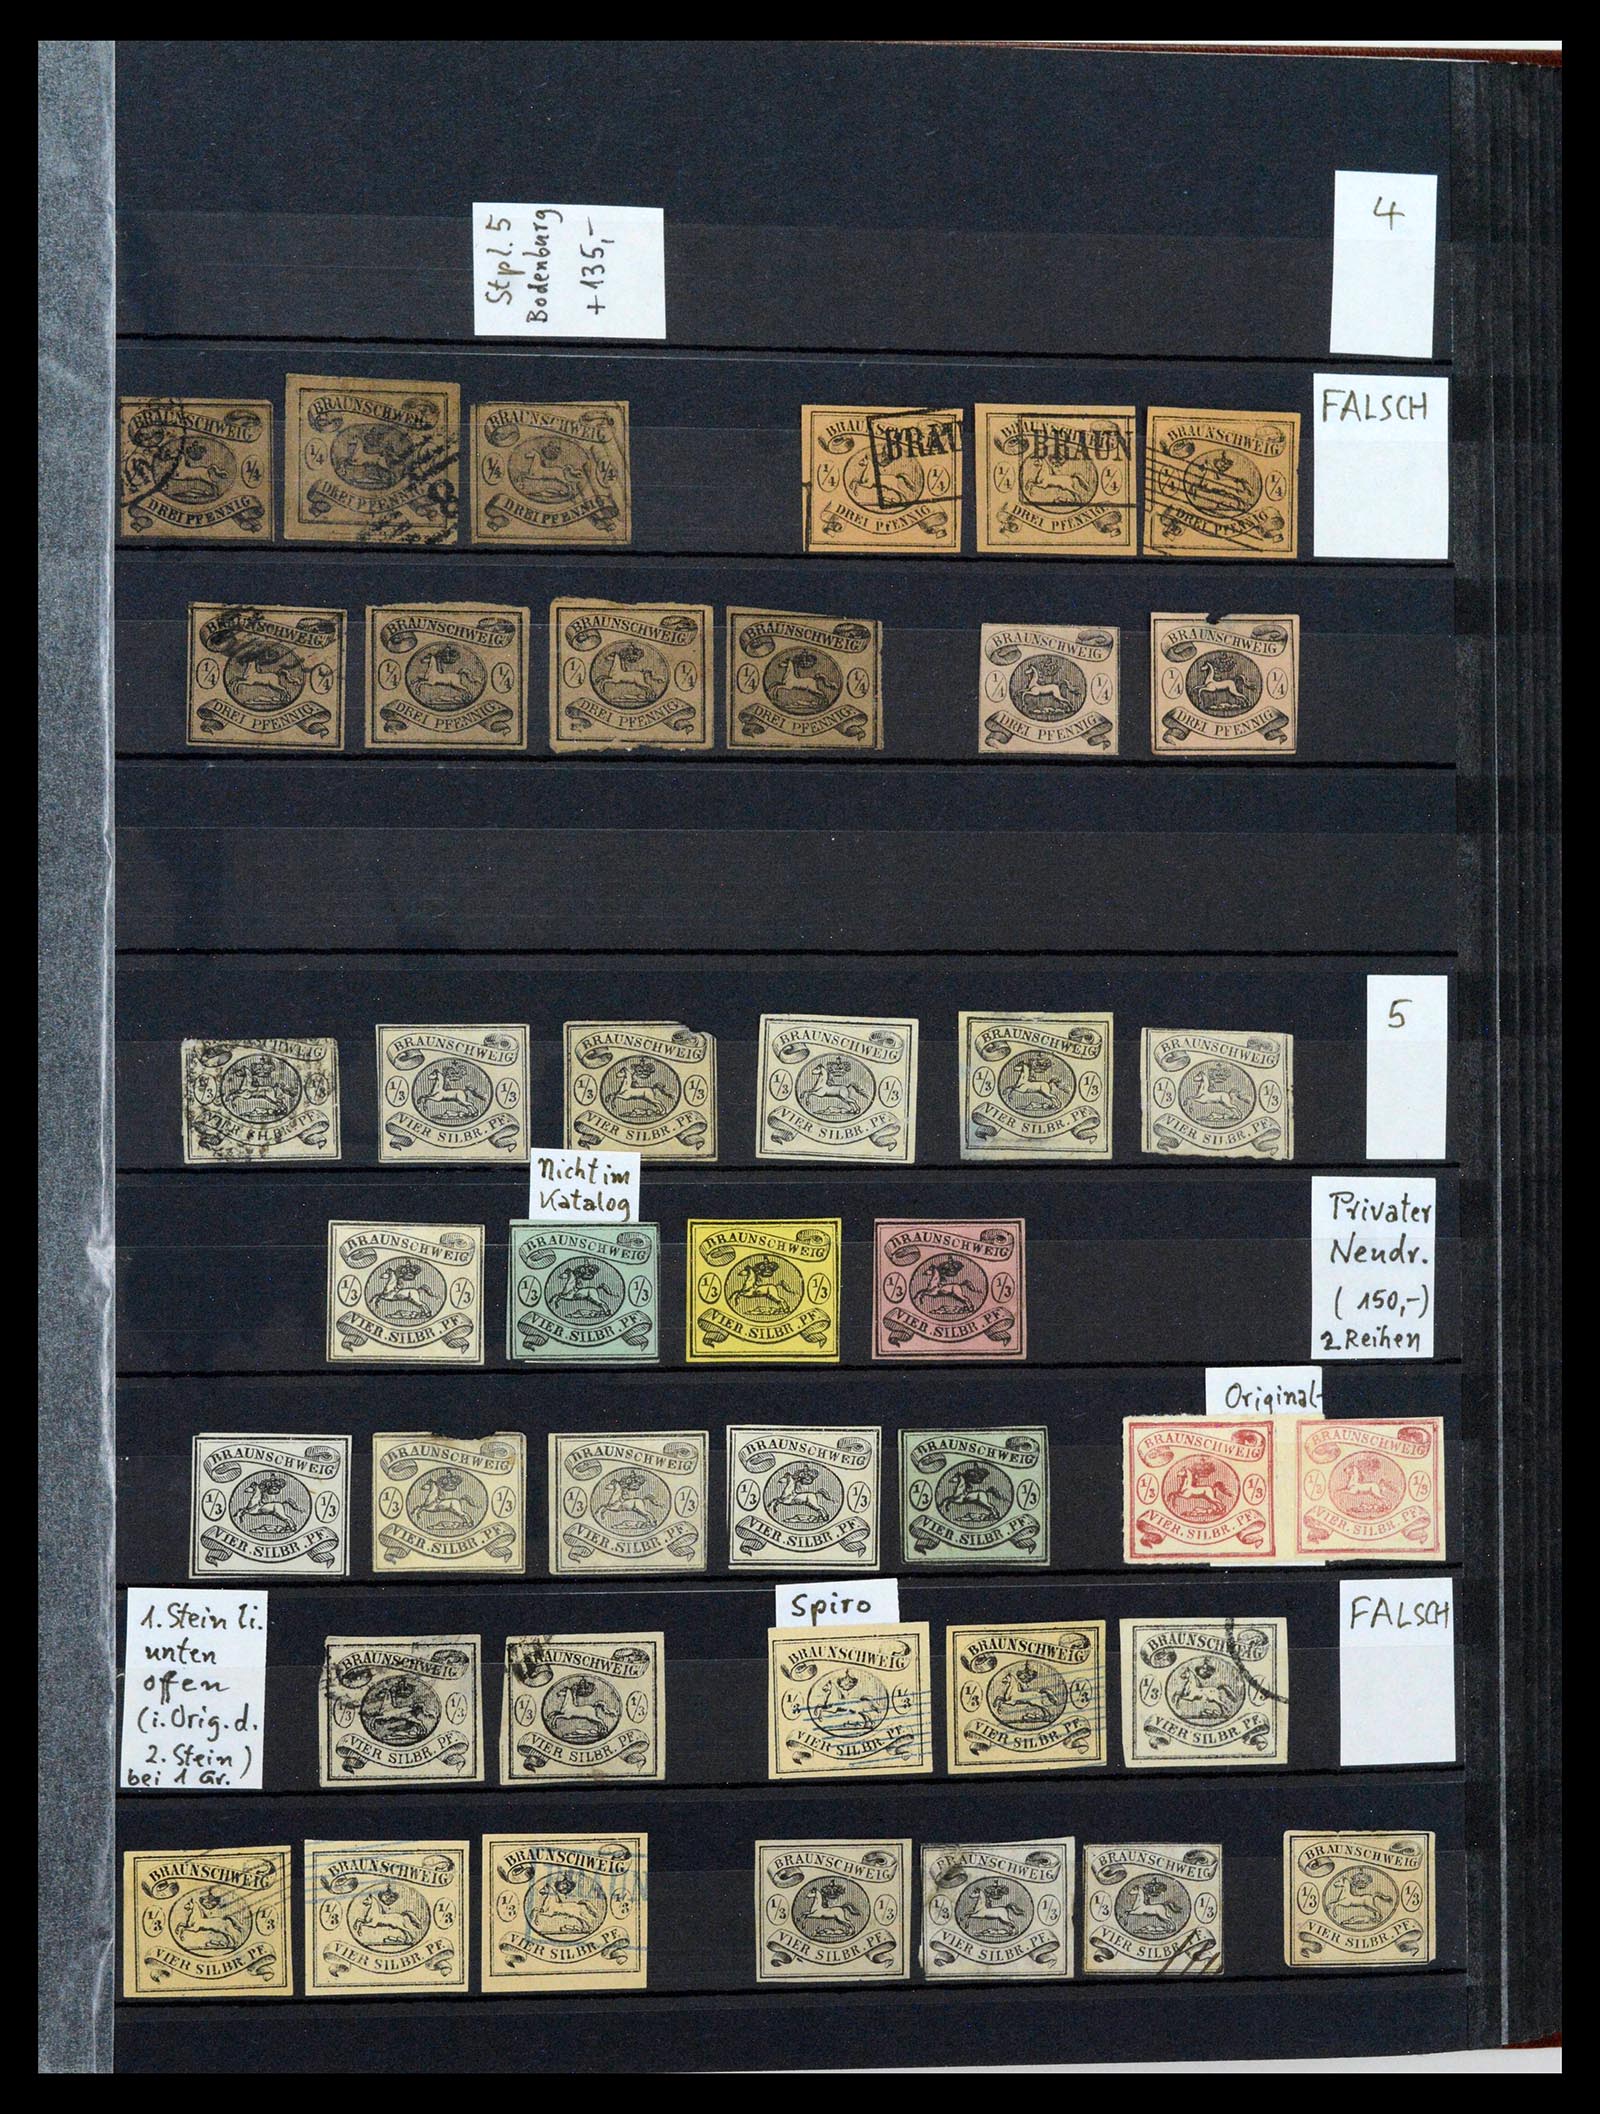 4
Stpl. 5
Bodenburg
+135,-
FALSCH
BRAUNSCHWEIG
1/4 1/4
DREI PFENNIG
BRAUNSCHWEIG
1/4 1/4
DREI PFENNIG
8
BRAUNSCHWEIG
1/4 1/4
DREI PFENNIG
BRAUNSCHWEIG
BRAU
1/4 1/4
DREI PFENNIG
BRAUNSCHWEIG
BRAUN
1/4 1/4
DREI PFENNIG
BRAUNSCHWEIG
1/4 1/4
DREI PFENNIG
BRAUNSCHWEIG
1/4 1/4
DREI PFENNIG
BRAUNSCHWEIG
1/4 1/4
DREI PFENNIG
BRAUNSCHWEIG
1/4 1/4
DREI PFENNIG
BRAUNSCHWEIG
1/4 1/4
DREI PFENNIG
BRAUNSCHWEIG
1/4 1/4
DREI PFENNIG
BRAUNSCHWEIG
1/4 1/4
DREI PFENNIG
5
BRAUNSCHWEIG
1/3 1/3
VIER SILBR. PF.
BRAUNSCHWEIG
1/3 1/3
VIER SILBR. PF.
BRAUNSCHWEIG
1/3 1/3
VIER SILBR. PF.
BRAUNSCHWEIG
1/3 1/3
VIER SILBR. PF.
BRAUNSCHWEIG
1/3 1/3
VIER SILBR. PF.
BRAUNSCHWEIG
1/3 1/3
VIER SILBR. PF.
Nicht im
Katalog
Privater
Neudr.
(150,-)
2 Reihen
BRAUNSCHWEIG
1/3 1/3
VIER. SILBR. PF.
BRAUNSCHWEIG
1/3 1/3
VIER. SILBR. PF.
BRAUNSCHWEIG
1/3 1/3
VIER. SILBR. PF.
BRAUNSCHWEIG
1/3 1/3
VIER. SILBR. PF.
Original-
BRAUNSCHWEIG
1/3 1/3
VIER. SILBR. PF.
BRAUNSCHWEIG
1/3 1/3
VIER. SILBR. PF.
BRAUNSCHWEIG
1/3 1/3
VIER. SILBR. PF.
BRAUNSCHWEIG
1/3 1/3
VIER. SILBR. PF.
BRAUNSCHWEIG
1/3 1/3
VIER. SILBR. PF.
BRAUNSCHWEIG
1/3 1/3
VIER. SILBR. PF.
BRAUNSCHWEIG
1/3 1/3
VIER. SILBR. PF.
1. Stein li.
unten
offen
(i. Orig. d.
2. Stein)
bei 1 Gr.
Spiro
FALSCH
BRAUNSCHWEIG
1/3 1/3
VIER SILBR. PF.
BRAUNSCHWEIG
1/3 1/3
VIER SILBR. PF.
BRAUNSCHWEIG
1/3 1/3
VIER SILBR. PF.
BRAUNSCHWEIG
1/3 1/3
VIER SILBR. PF.
BRAUNSCHWEIG
1/3 1/3
VIER SILBR. PF.
BRAUNSCHWEIG
1/3 1/3
VIER SILBR. PF.
BRAUNSCHWEIG
1/3 1/3
VIER SILBR. PF.
BRAUNSCHWEIG
1/3 1/3
VIER SILBR. PF.
BRAUNSCHWEIG
1/3 1/3
VIER SILBR. PF.
BRAUNSCHWEIG
1/3 1/3
VIER SILBR. PF.
BRAUNSCHWEIG
1/3 1/3
VIER SILBR. PF.
BRAUNSCHWEIG
1/3 1/3
VIER SILBR. PF.